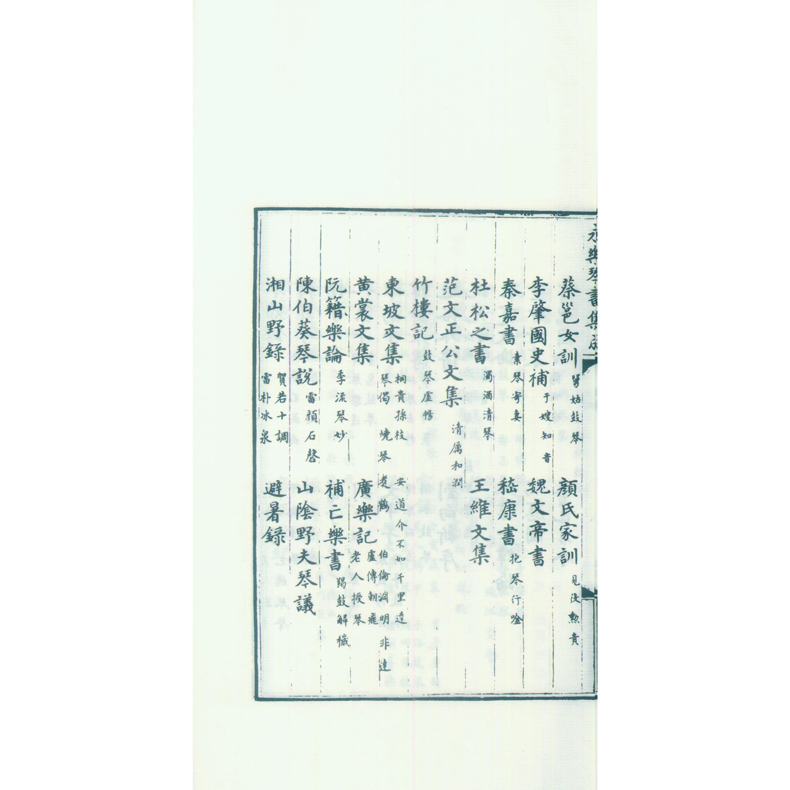 永樂琴書集成
蔡邕女訓 舅姑鼓琴 顏氏家訓 見役勲貴
李肇國史補 于嫂知音 魏文帝書
秦嘉書 素琴寄妻 嵇康書 抱琴行吟
杜松之書 濁酒清琴 王維文集
范文正公文集 清厲和潤
竹樓記 鼓琴虛暢
東坡文集 桐貴孫枝 琴偈 燒琴煑鶴 安道介不如千里達 伯倫淵明非達
黃裳文集 廣樂記 盧傳朝飛 老人授琴
阮籍樂論 季流琴妙 補亡樂書 羯鼓解穢
陳伯葵琴說 雷損石磬 山陰野夫琴議
湘山野錄 賀若十調 雷朴冰泉 避暑錄